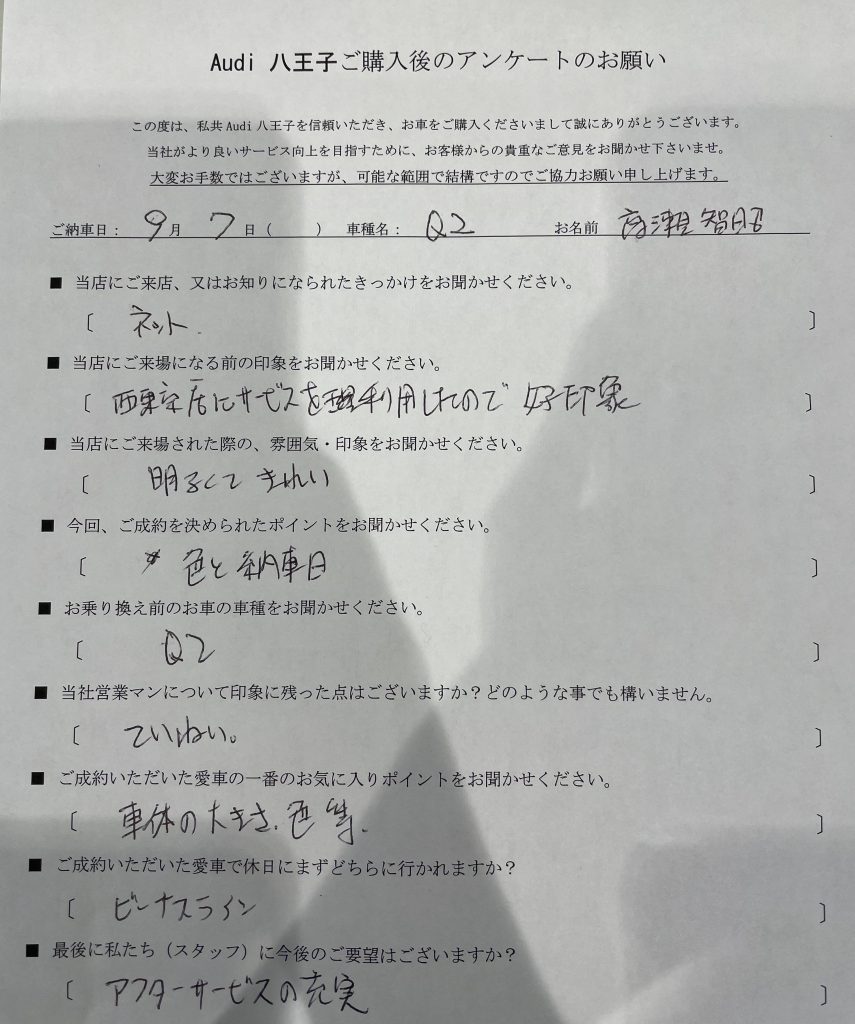 Audi 八王子ご購入後のアンケートのお願い
この度は、私共 Audi 八王子を信頼いただき、お車をご購入くださいまして誠にありがとうございます。
当社がより良いサービス向上を目指すために、お客様からの貴重なご意見をお聞かせ下さいませ。
大変お手数ではございますが、可能な範囲で結構ですのでご協力お願い申し上げます。
ご納車日： 9月 7日（ ） 車種名： Q2 お名前 智昭
■ 当店にご来店、又はお知りになられたきっかけをお聞かせください。
〔 ネット. 〕
■ 当店にご来場になる前の印象をお聞かせください。
〔 西東京店にサービスを利用したので 好印象 〕
■ 当店にご来場された際の、雰囲気・印象をお聞かせください。
〔 明るくて きれい 〕
■ 今回、ご成約を決められたポイントをお聞かせください。
〔 色と納車日 〕
■ お乗り換え前のお車の車種をお聞かせください。
〔 Q2 〕
■ 当社営業マンについて印象に残った点はございますか？どのような事でも構いません。
〔 ていねい。 〕
■ ご成約いただいた愛車の一番のお気に入りポイントをお聞かせください。
〔 車体の大きさ.色等. 〕
■ ご成約いただいた愛車で休日にまずどちらに行かれますか？
〔 ビーナスライン 〕
■ 最後に私たち（スタッフ）に今後のご要望はございますか？
〔 アフターサービスの充実 〕